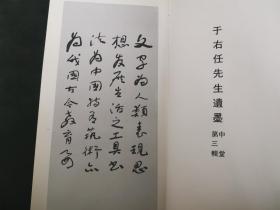 文字為人類表現思
想發展生活之工具書
法為中國特有藝術亦
為我國古今教育
于右任先生遺墨
中堂
第三輯